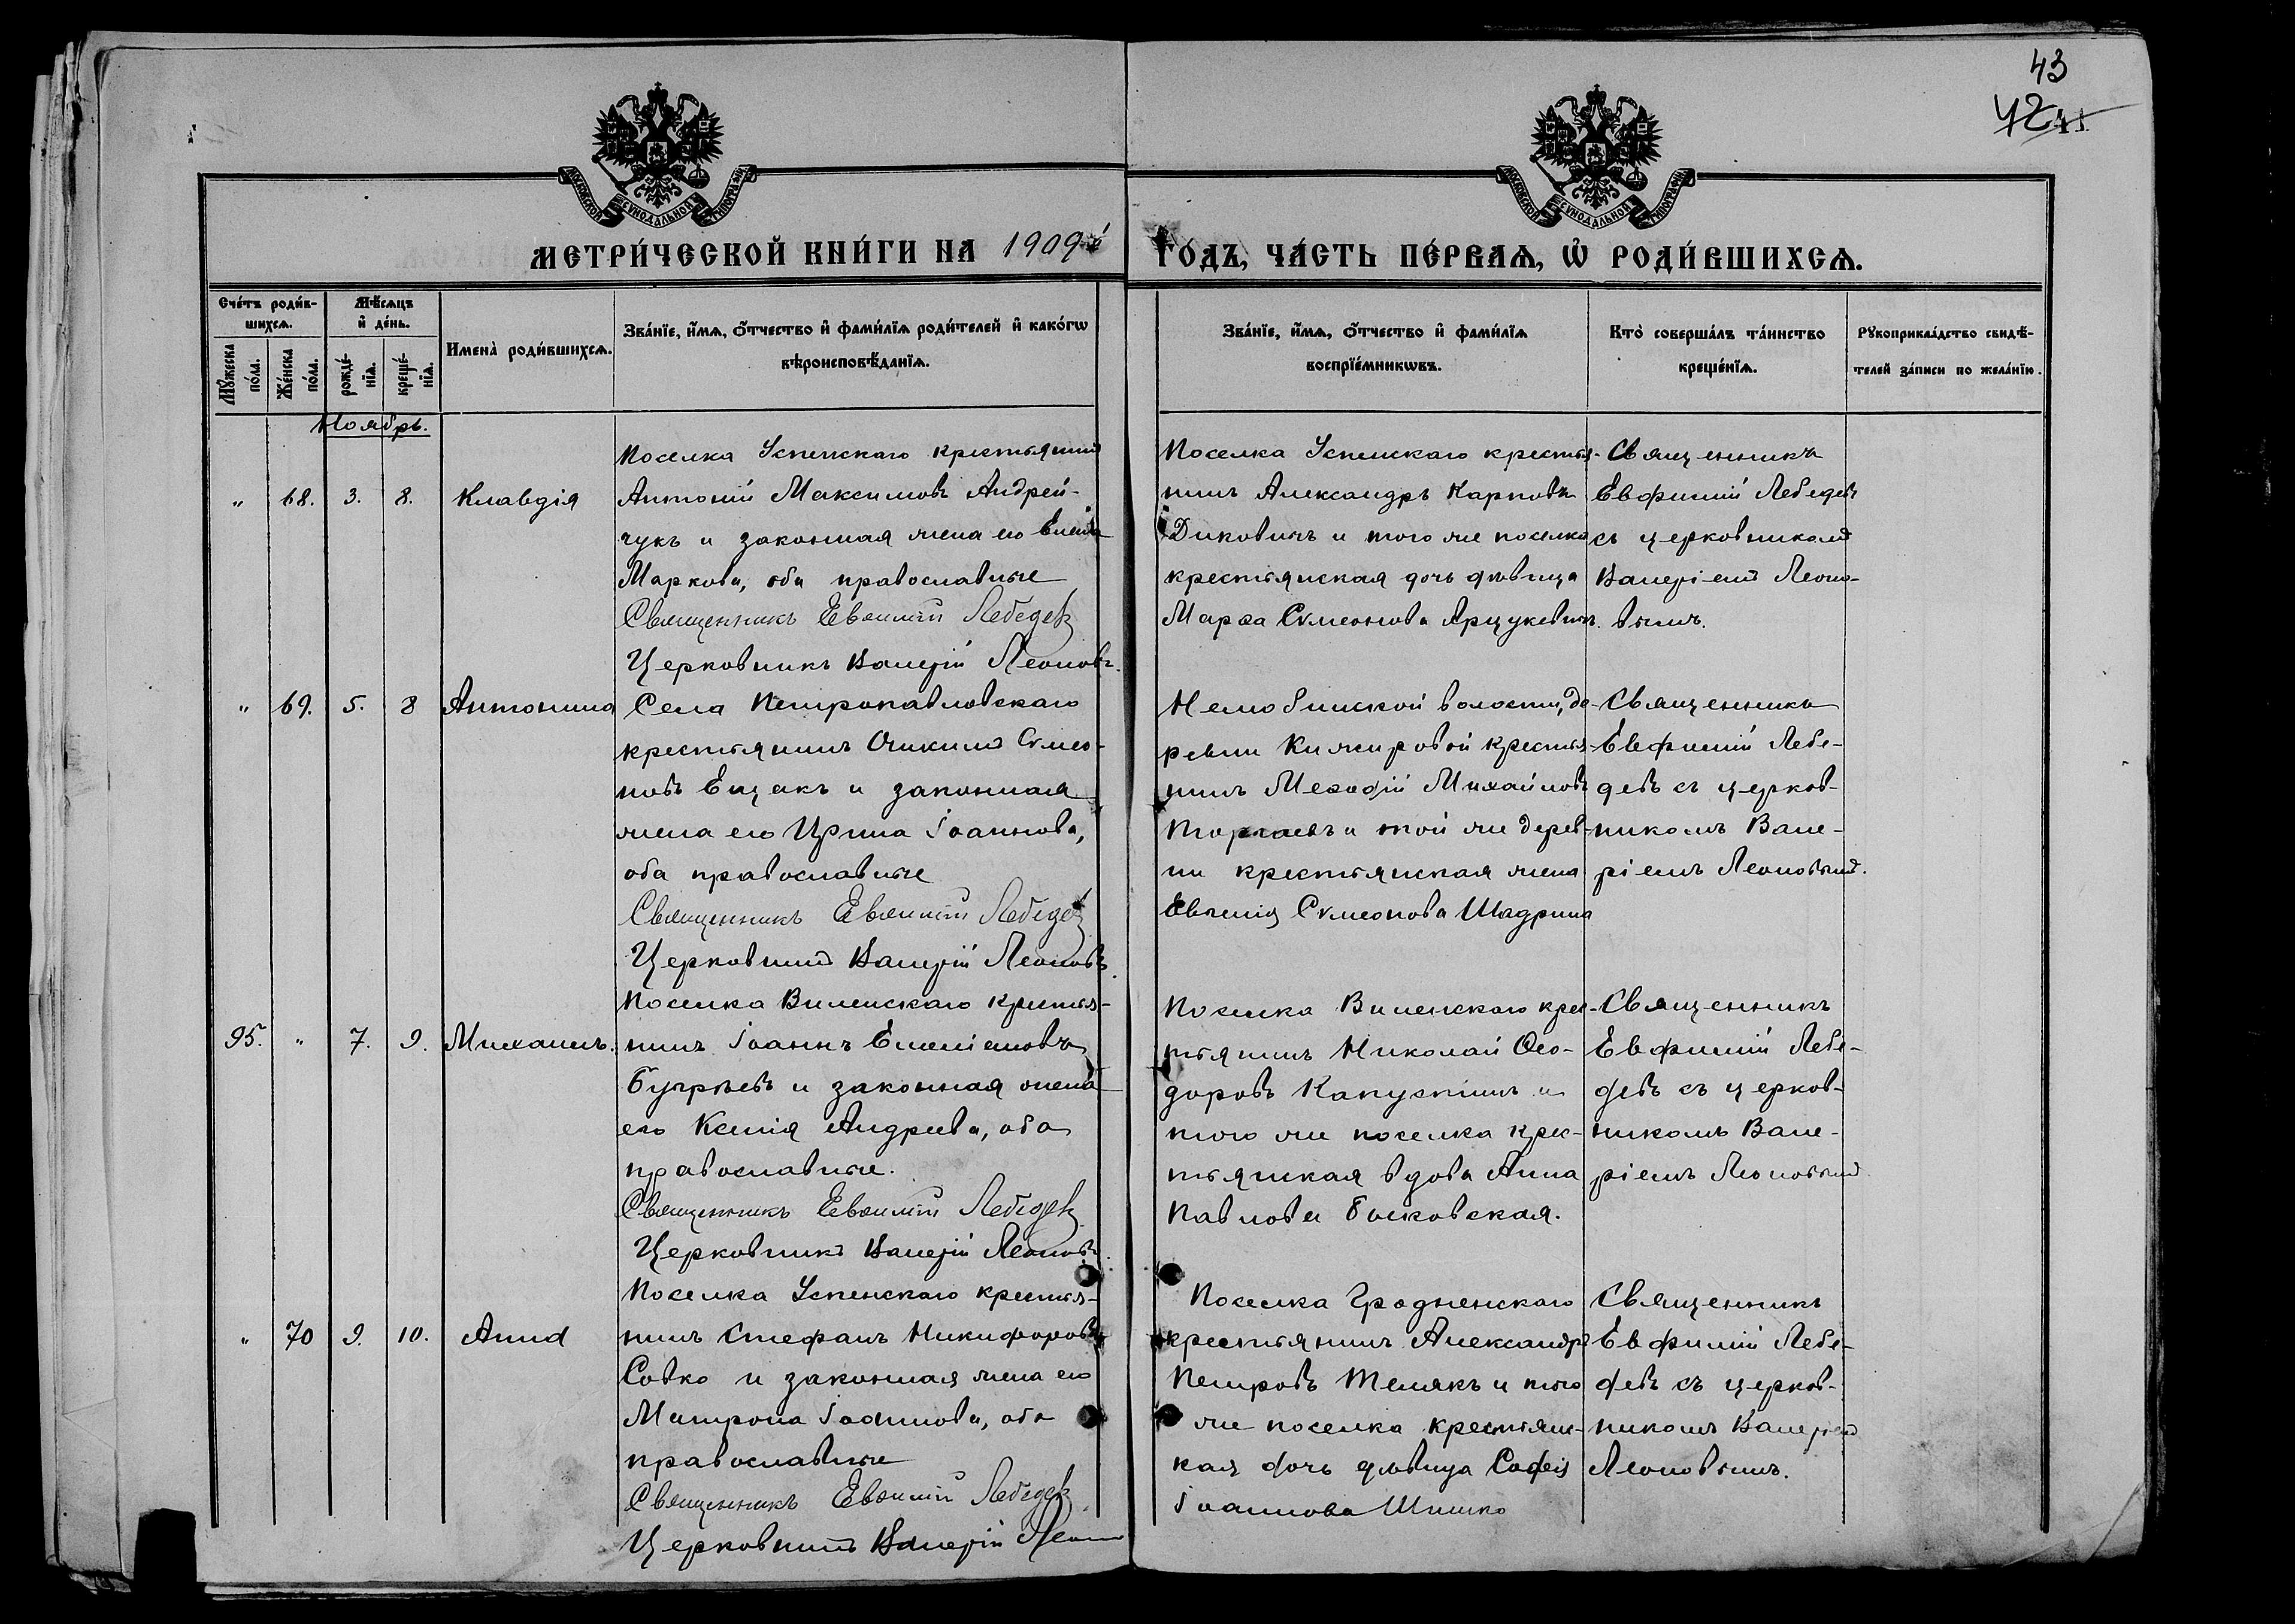 43
42
МОСКОВСКОЙ СѴНОДАЛЬНОЙ ТИПОГРАФІИ
МОСКОВСКОЙ СѴНОДАЛЬНОЙ ТИПОГРАФІИ
МЕТРИ́ЧЕСКОЙ КНИ́ГИ НА 1909й
ГО́ДЪ, ЧА́СТЬ ПЕ́РВАѦ, Ѡ҆ РОДИ́ВШИХСѦ.
Сче́тъ роди́в-
шихсѧ.
Мѣ́сѧцъ
и҆ де́нь.
Мꙋ́жеска
по́ла.
Же́нска
по́ла.
рожде́-
нїѧ.
креще́-
нїѧ.
Имена̀ роди́вшихсѧ.
Зва́нїе, и҆́мѧ, ѻ҆́тчество и҆ фами́лїѧ роди́телей и҆ како́гѡ
вѣроисповѣ́данїѧ.
Зва́нїе, и҆́мѧ, ѻ҆́тчество и҆ фами́лїѧ
воспрїе́мникѡвъ.
Кто̀ соверша́лъ та́инство
креще́нїѧ.
Рꙋкоприкла́дство свидѣ́-
телей за́писи по жела́нїю.
Ноябрь.
" 68. 3. 8. Клавдія
Поселка Успенскаго крестьянинъ
Антоній Максимовъ Андрей-
чукъ и законная жена его Елена
Маркова, оба православные
Священникъ Евѳимій Лебедевъ
Церковникъ Валерій Леоновъ.
Поселка Успенскаго крестья-
нинъ Александръ Карповъ
Диковичъ и того же поселка
крестьянская дочь дѣвица
Марѳа Сѵмеонова Ярцукевичъ.
Священникъ
Евфимій Лебедевъ
съ церковникомъ
Валеріемъ Леоно-
вымъ.
" 69. 5. 8 Антонина
Села Петропавловскаго
крестьянинъ Іоакимъ Сѵмео-
новъ Ещакъ и законная
жена его Ирина Іоаннова,
оба православные
Священникъ Евѳимій Лебедевъ
Церковникъ Валерій Леоновъ.
волости, де-
ревни крестья-
нинъ Меѳодій Михайловъ
и той же дерев-
ни крестьянская жена
Евгенія Сѵмеонова Шадрина
Священникъ
Евфимій Лебе-
девъ съ церков-
никомъ Вале-
ріемъ Леоновымъ.
95. " 7. 9. Михаилъ.
Поселка Виленскаго крестья-
нинъ Іоаннъ Емеліановъ
Бугрѣевъ и законная жена
его Ксенія Андреева, оба
православные.
Священникъ Евѳимій Лебедевъ
Церковникъ Валерій Леоновъ.
Поселка Виленскаго крес-
тьянинъ Николай Ѳео-
доровъ Капустинъ и
того же поселка крес-
тьянская вдова Анна
Павлова Быковская.
Священникъ
Евфимій Лебе-
девъ съ церков-
никомъ Вале-
ріемъ Леоновымъ
" 70 9. 10. Анна
Поселка Успенскаго крестья-
нинъ Стефанъ Никифоровъ
Совко и законная жена его
Матрона Іоаннова, оба
православные
Священникъ Евѳимій Лебедевъ
Церковникъ Валерій Леонов
Поселка Гродненскаго
крестьянинъ Александръ
Петровъ Телякъ и того
же поселка крестьян-
кая дочь дѣвица Софія
Іоаннова Шишко
Священникъ
Евфимій Лебе-
девъ съ церков-
никомъ Валеріемъ
Леоновымъ.